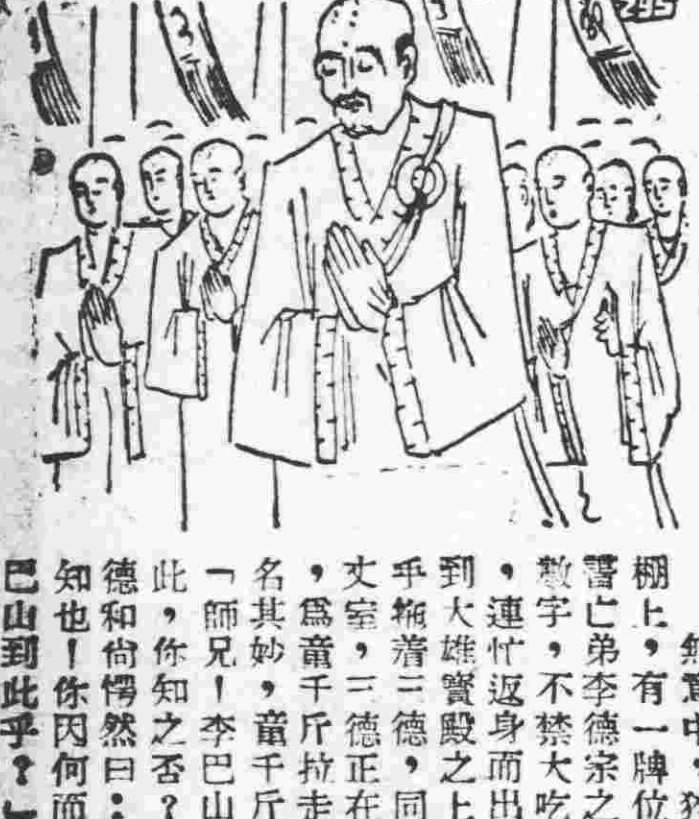 無意中，
棚上，有一牌位
書亡弟李德宗之
數字，不禁大吃
，連忙返身而出
到大雄寶殿之上
乎拖着三德，同
丈室，三德正在
，爲童千斤拉走
名其妙，童千斤
「師兄！李巴山
此，你知之否？
德和尙愕然曰：
知也！你因何而
巴山到此乎？」